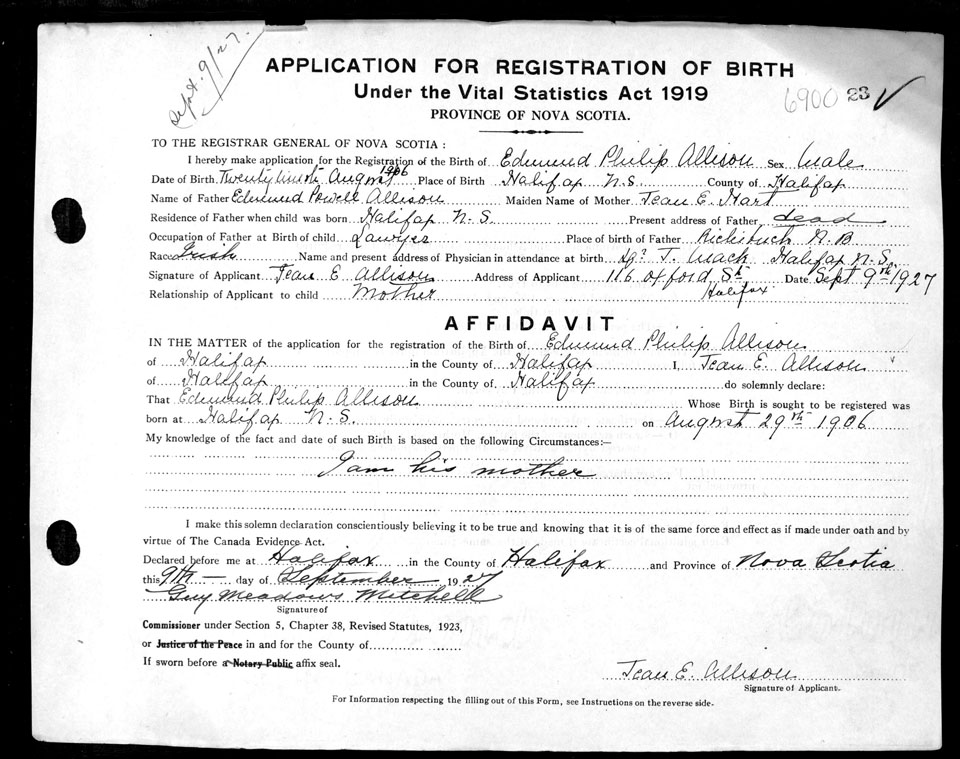 Sept. 9/27.
APPLICATION FOR REGISTRATION OF BIRTH
Under the Vital Statistics Act 1919
6900 23 ✓
PROVINCE OF NOVA SCOTIA.
TO THE REGISTRAR GENERAL OF NOVA SCOTIA:
I hereby make application for the Registration of the Birth of Edmund Philip Allison Sex Male
Date of Birth Twenty ninth August 1906 Place of Birth Halifax N.S. County of Halifax
Name of Father Edmund Powell Allison Maiden Name of Mother Jean E. Hart
Residence of Father when child was born Halifax N.S. Present address of Father dead
Occupation of Father at Birth of child Lawyer Place of Birth of Father Richibucto N.B
Race Irish Name and present address of Physician in attendance at birth T. Halifax N.S.
Signature of Applicant Jean E. Allison Address of Applicant 116 Oxford St Date Sept 9th 1927
Relationship of Applicant to child Mother Halifax
AFFIDAVIT
IN THE MATTER of the application for the registration of the Birth of Edmund Philip Allison
of Halifax in the County of Halifax I, Jean E. Allison
of Halifax in the County of Halifax do solemnly declare:
That Edmund Philip Allison Whose Birth is sought to be registered was
born at Halifax N.S. on August 29th 1906
My knowledge of the fact and date of such Birth is based on the following Circumstances:—
I am his mother
I make this solemn declaration conscientiously believing it to be true and knowing that it is of the same force and effect as if made under oath and by
virtue of The Canada Evidence Act.
Declared before me at Halifax in the County of Halifax and Province of Nova Scotia
this 9th — day of September 1927
Guy Meadows Mitchell
Signature of
Commissioner under Section 5, Chapter 38, Revised Statutes, 1923,
or Justice of the Peace in and for the County of
If sworn before a Notary Public affix seal.
Jean E. Allison
Signature of Applicant.
For Information respecting the filling out of this Form, see Instructions on the reverse side.